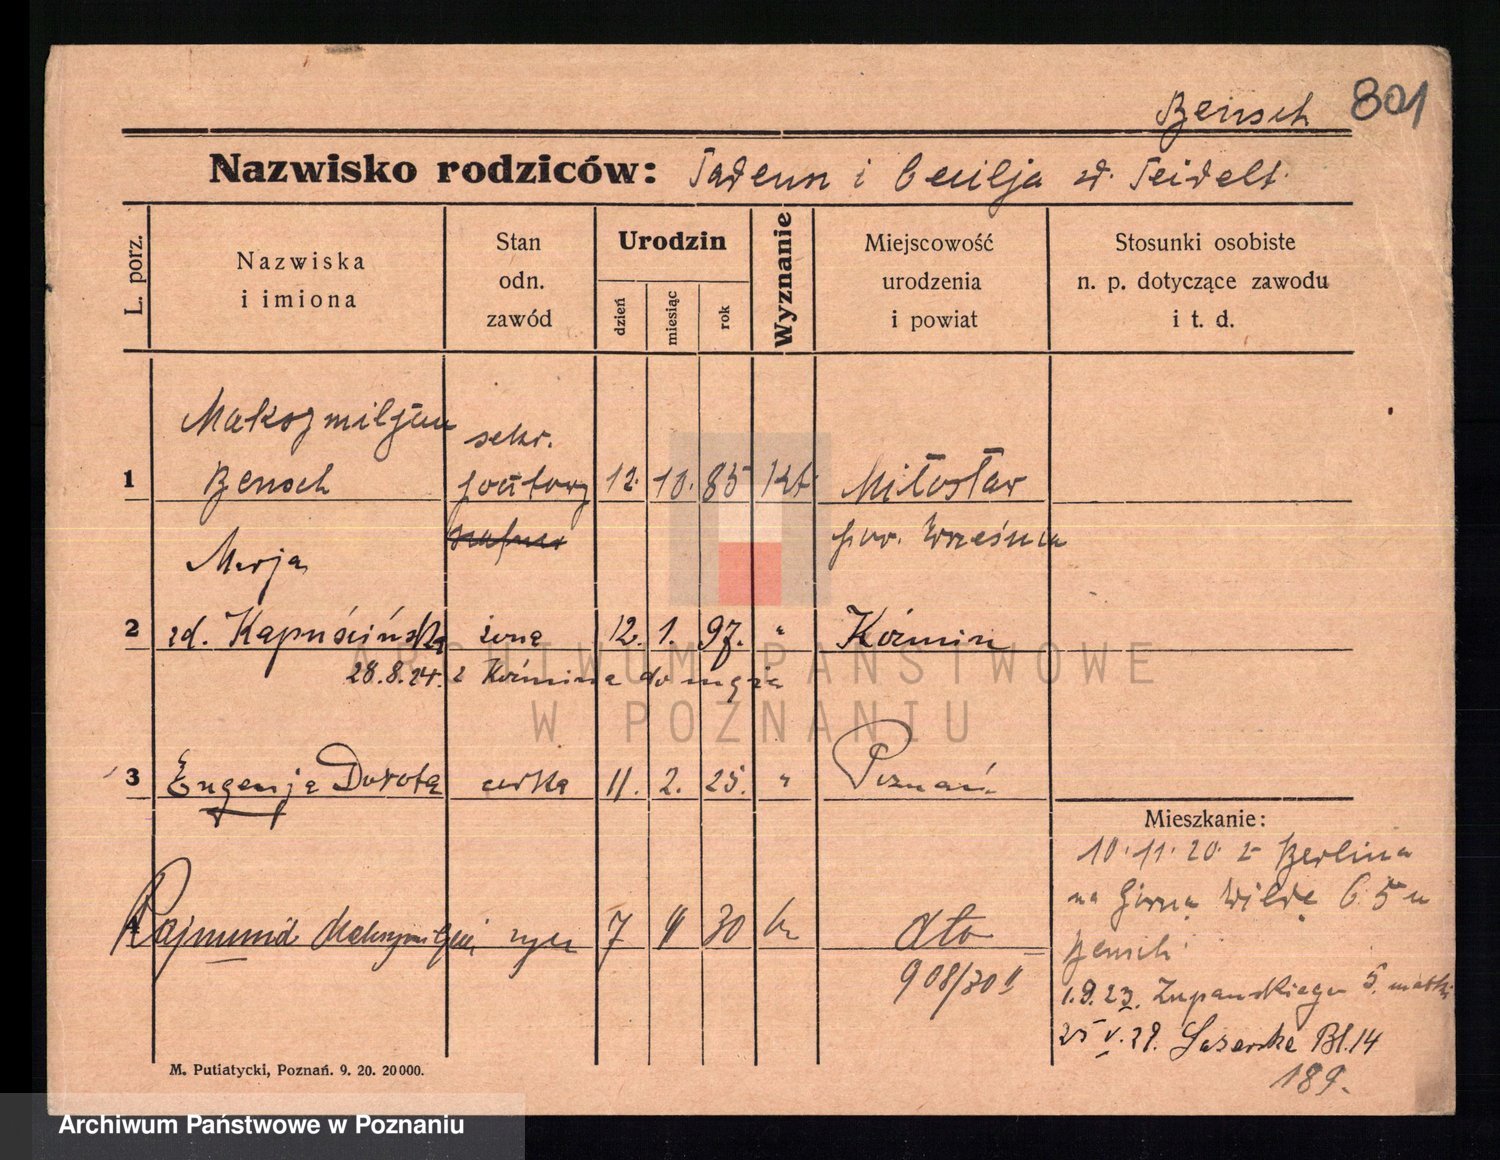 Bensch 801
Nazwisko rodziców: Tadeusz i Cecilja zd. Seidelt.
L. porz.
Nazwiska
i imiona
Stan
odn.
zawód
Urodzin
dzień
miesiąc
rok
Wyznanie
Miejscowość
urodzenia
i powiat
Stosunki osobiste
n. p. dotyczące zawodu
i t. d.
Maksymiljan sekr.
1 Bensch pocztowy 12. 10. 85 Kt. Miłosław
pow. Września
Marja
2 zd. Kapuścińska żona 12. 1. 97. " Koźmin
28.8.24. z Koźmina do męża
3 Eugenja Dorota córka 11. 2. 25. " Poznań
Mieszkanie:
10.11.20 z Berlina
na Górną Wildę 65 u
Bensch
4 Rajmund Maksymiljan syn 7 4 30 dto
908/30 II
1.9.23. Żupańskiego 5. matki
25 V. 29. Łazarska Bl. 14
189.
M. Putiatycki, Poznań. 9. 20. 20000.
ARCHIWUM PAŃSTWOWE
W POZNANIU
Archiwum Państwowe w Poznaniu